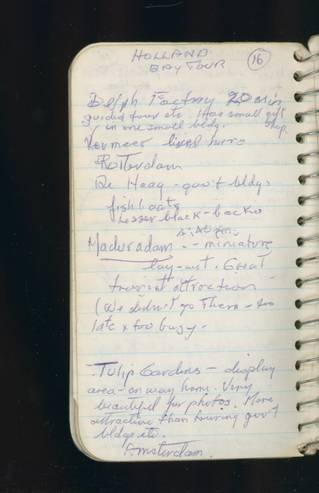 HOLLAND
DAY TOUR
16
Delph Factory 20 min
guided tour etc. Has small gift
in one small bldg. shop.
Vermeer lived here
Rotterdam
De Haag - gov't bldgs
fishboats
Lesser black-backs
Maduradam - miniature
lay-out. Great
tourist attraction
(We didn't go there - too
late & too busy -
Tulip Gardens - display
area - on way home. Very
beautiful for photos. More
attractive than touring gov't
bldgs etc.
Amsterdam